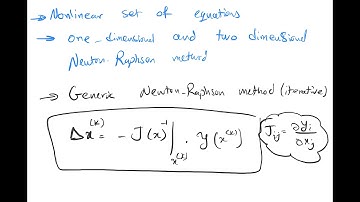 → Nonlinear set of equations
→ one-dimensional and two dimensional
Newton-Raphson method
→ Generic Newton-Raphson method (iterative)
Δx^(k) = - J(x)^-1 |_x^(k) . y(x^(k))
J_ij = ∂y_i/∂x_j